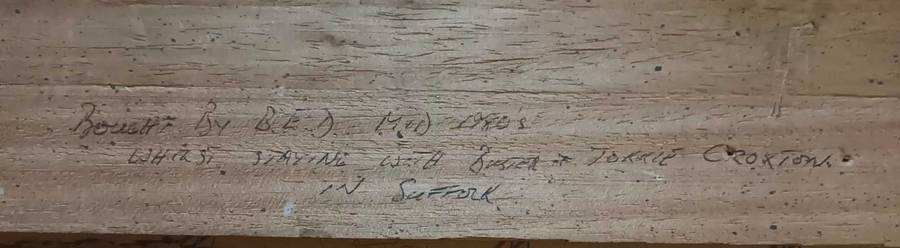 BOUGHT BY B.E.D. MID 1980's
WHIRST STAYING WITH BUSTER + TORRIE CROXTON.
IN SUFFOLK